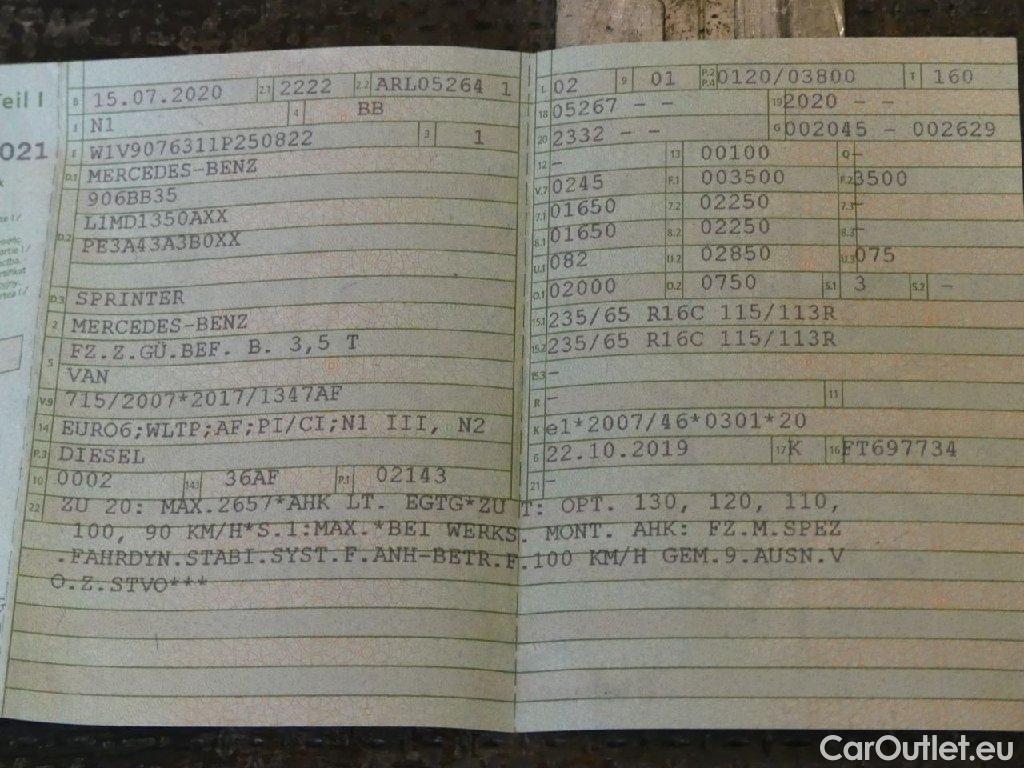 Teil I
021
B 15.07.2020 2.1 2222 2.2 ARL05264 1
J N1 4 BB
E W1V9076311P250822 3 1
D.1 MERCEDES-BENZ
906BB35
L1MD1350AXX
D.2 PE3A43A3B0XX
D.3 SPRINTER
2 MERCEDES-BENZ
5 FZ.Z.GÜ.BEF. B. 3,5 T
VAN
V.9 715/2007*2017/1347AF
14 EURO6;WLTP;AF;PI/CI;N1 III, N2
P.3 DIESEL
10 0002 14.1 36AF P.1 02143
L 02 9 01 P.2 P.4 0120/03800 T 160
18 05267 - - 19 2020 - -
20 2332 - - G 002045 - 002629
12 - 13 00100 Q -
V.7 0245 F.1 003500 F.2 3500
7.1 01650 7.2 02250 7.3 -
8.1 01650 8.2 02250 8.3 -
U.1 082 U.2 02850 U.3 075
O.1 02000 O.2 0750 S.1 3 S.2 -
15.1 235/65 R16C 115/113R
15.2 235/65 R16C 115/113R
15.3 -
R - 11
K e1*2007/46*0301*20
6 22.10.2019 17 K 16 FT697734
21 -
22 ZU 20: MAX.2657*AHK LT. EGTG*ZU T: OPT. 130, 120, 110,
100, 90 KM/H*S.1:MAX.*BEI WERKS. MONT. AHK: FZ.M.SPEZ
.FAHRDYN.STABI.SYST.F.ANH-BETR.F.100 KM/H GEM.9.AUSN.V
O.Z.STVO***
CarOutlet.eu